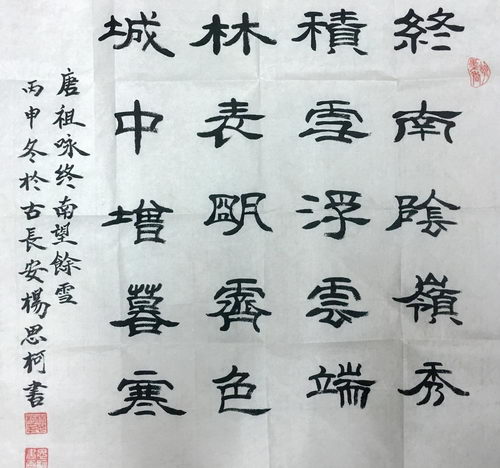 終南陰嶺秀
積雪浮雲端
林表明霽色
城中增暮寒
唐祖咏終南望餘雪
丙申冬於古長安楊思柯書